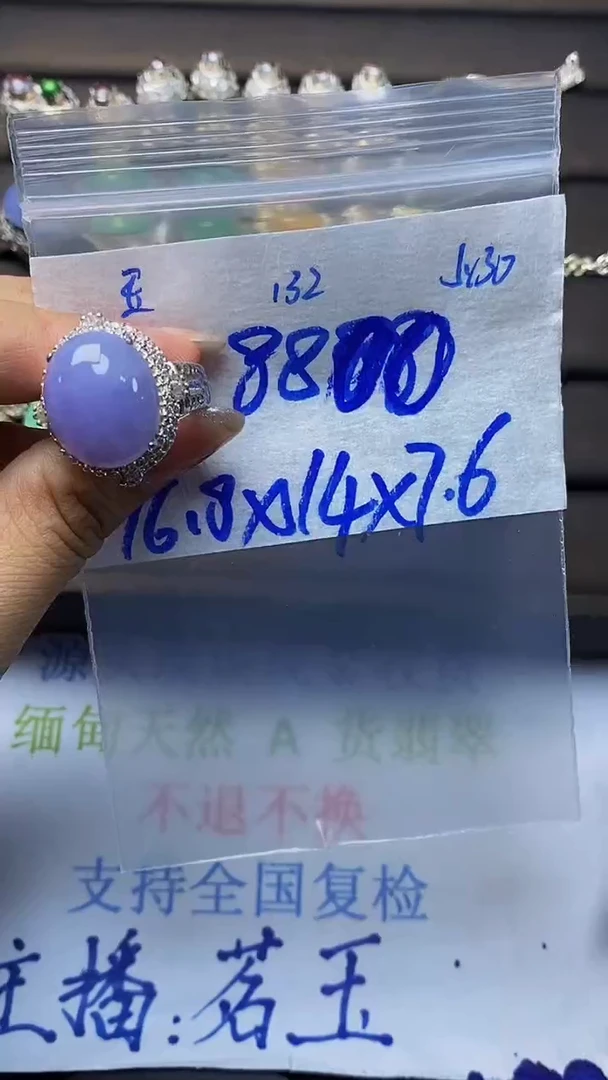 132
8800
16.8x14x7.6
源
缅甸天然 A 货翡翠
不退不换
支持全国复检
主播:茗玉